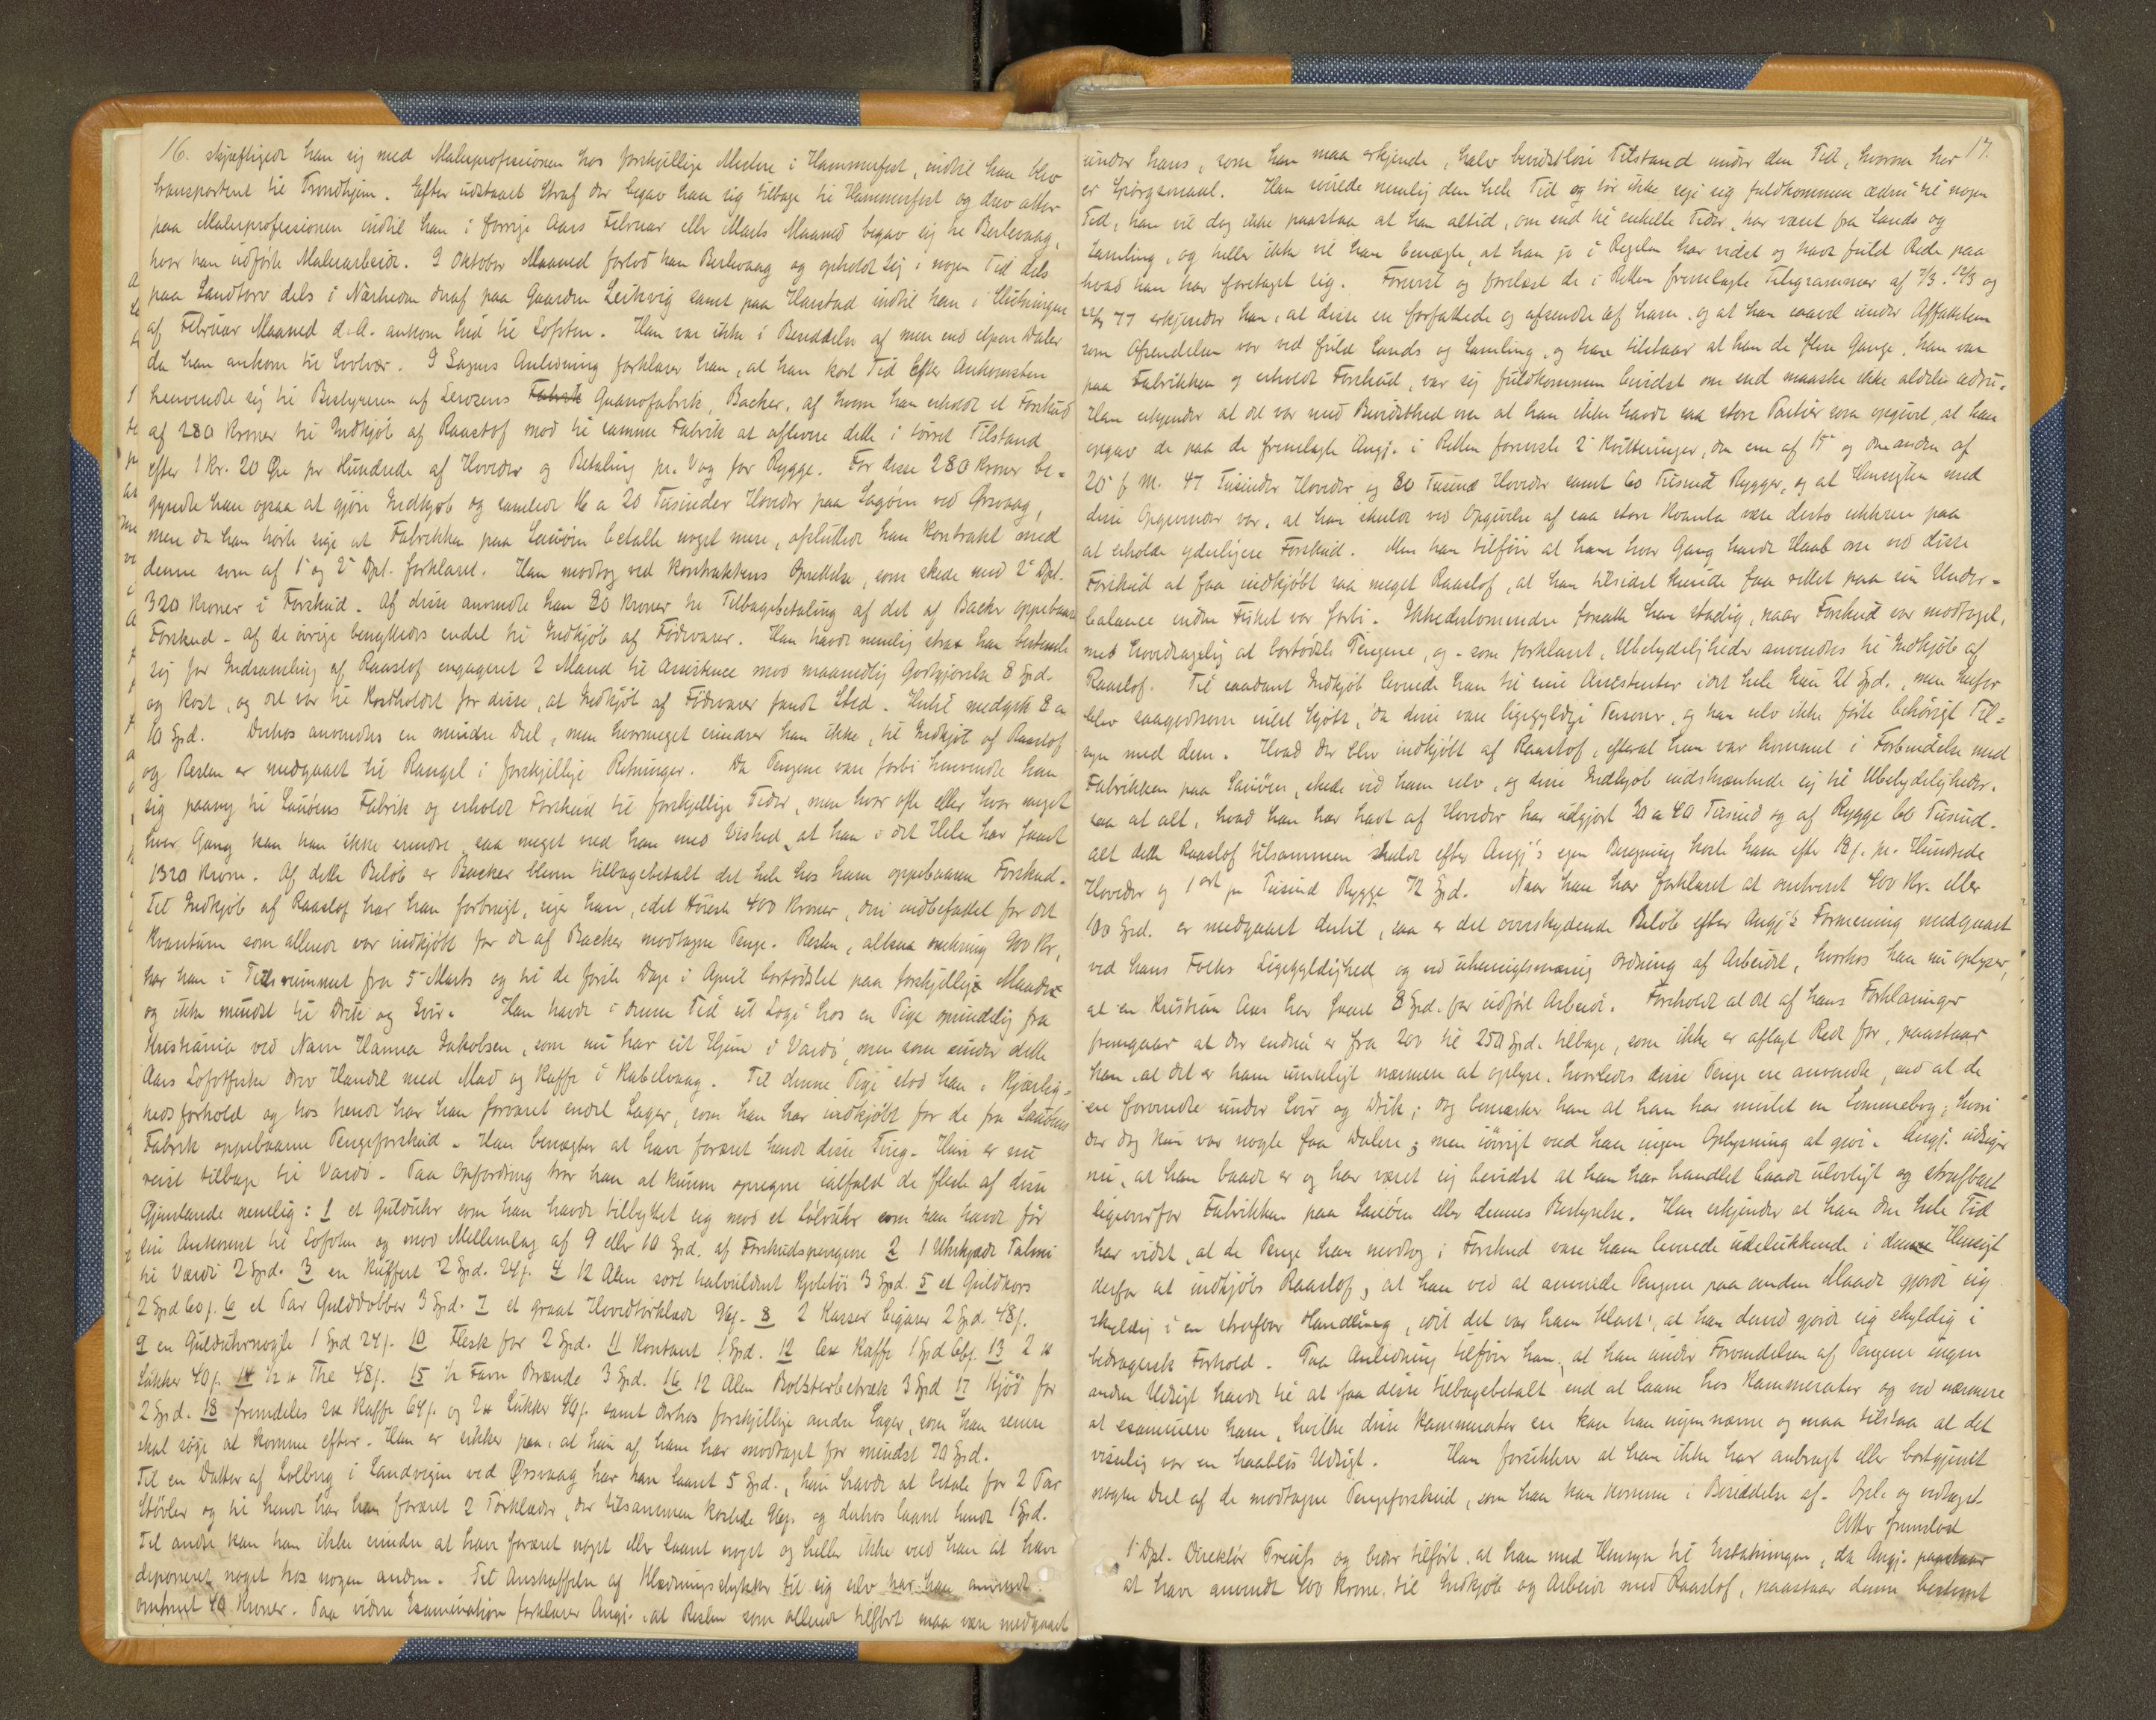 16.
skjæftigede han sig med Malerprofessionen hos forskjellige Mestere i Hammerfest, indtil han blev
transporteret til Trondhjem. Efter udstaaet Straf der begav han sig tilbage til Hammerfest og drev atter
paa Malerprofessionen indtil han i forrige Aars Februar eller Marts Maaned begav sig til Berlevaag,
hvor han udførte Malerarbeide. I Oktober Maaned forlod han Berlevaag og opholdt sig i nogen Tid dels
paa Sandtorv dels i Nærheden deraf paa Gaarden Leikvig samt paa Harstad indtil han i Slutningen
af Februar Maaned d. A. ankom hid til Lofoten. Han var ikke i Besiddelse af mere end Daler
da han ankom til Svolvær. I Sagens Anledning forklarer han, at han kort Tid efter Ankomsten
henvendte sig til Bestyreren af Fabrik Guanofabrik, Backer, af hvem han erholdt et Forskud
af 280 Kroner til Indkjøb af Raastof mod til samme Fabrik at aflevere dette i tørret Tilstand
efter 1 Kr. 20 Øre pr Hundrede af Hoveder og Betaling pr. Vog for Rygge. For disse 280 Kroner be-
gyndte han ogsaa at gjøre Indkjøb og samlede 16 a 20 Tusinder Hoveder paa ved Ørsvaag,
men da han hørte sige at Fabrikken paa betalte noget mere, afsluttede han Kontrakt med
denne som af 1ste og 2det Dpt. forklaret. Han modtog ved Kontraktens Oprettelse, som skede med 2det Dpt.
320 Kroner i Forskud. Af disse anvendte han 80 Kroner til Tilbagebetaling af det af Backer oppebaarne
Forskud - af de øvrige benyttedes endel til Indkjøb af Fødevarer. Han havde nemlig strax han bestemte
sig for Indsamling af Raastof engageret 2 Mand til Assistence mod maanedlig Godtgjørelse 8 Spd.
og Kost, og det var til Kostholdet for disse, at Indkjøb af Fødevarer fandt Sted. Hertil medgik 8 a
10 Spd. Derhos anvendtes en mindre Del, men hvormeget erindrer han ikke, til Indkjøb af Raastof
og Resten er medgaaet til Rangel i forskjellige Retninger. Da Pengene vare forbi henvendte han
sig paany til Fabrik og erholdt Forskud til forskjellige Tider, men hvor ofte eller hvor meget
hver Gang kan han ikke erindre, saa meget ved han med Vished, at han i det Hele har faaet
1320 Kroner. Af dette Beløb er Backer bleven tilbagebetalt det hele hos ham oppebaarne Forskud.
Til Indkjøb af Raastof har han forbrugt, siger han, i det Høieste 400 Kroner, deri indbefattet for det
Kvantum som allerede var indkjøbt for de af Backer modtagne Penge. Resten, altsaa omkring 900 Kr,
har han i Tidsrummet fra 5te Marts og til de første Dage i April bortødslet paa forskjellige Maader
og ikke mindst til Drik og Svir. Han havde i denne Tid sit Logi hos en Pige oprindelig fra
Kristiania ved Navn Hanna Jakobsen, som nu har sit Hjem i Vardø, men som under dette
Aars Lofotfiske drev Handel med Mad og Kaffe i Kabelvaag. Til denne Pige stod han i Kjærlig-
hedsforhold og hos hende har han foræret endel Sager, som han har indkjøbt for de fra
Fabrik oppebaarne Pengeforskud. Han benægter at have foræret hende disse Ting. Hun er nu
reist tilbage til Vardø. Paa Opfordring tror han at kunne opregne ialfald de fleste af disse
Gjenstande nemlig: 1 et Guldur som han havde tilbyttet sig mod et Sølvuhr som han havde før
sin Ankomst til Lofoten og mod Mellemlag af 9 eller 10 Spd. af Forskudspengene 2 1 Uhrkjæde Talmi
til Værdi 2 Spd. 3 en Kuffert 2 Spd. 24 s. 4 12 Alen sort halvuldent Kjoletøi 3 Spd. 5 et Guldkors
2 Spd 60 s. 6 et Par Gulddobber 3 Spd. 7 et graat Hovedtørklæde 96 s. 8 2 Kasser Cigarer 2 Spd. 48 s.
9 en Gulduhrnøgle 1 Spd 24 s. 10 Flesk for 2 Spd. 11 kontant 1 Spd. 12 Kaffe 1 Spd 13 2
Sukker 40 s. 14 1/2 The 48 s. 15 1/2 Favn Brænde 3 Spd. 16 12 Alen Bolsterbetræk 3 Spd 17 Kjød for
2 Spd. 18 fremdeles Kaffe 64 s. og Sukker 40 s. samt derhos forskjellige andre Sager, som han senere
skal søge at komme efter. Han er sikker paa, at hun af ham har modtaget for mindst 70 Spd.
Til en Datter af Solberg i Sandvigen ved Ørsvaag har han laant 5 Spd., hun havde at betale for 2 Par
Støvler og til hende har han foræret 2 Tørklæder, der tilsammen kostede 96 s. og derhos laant hende 1 Spd.
Til andre kan han ikke erindre at have foræret noget eller laant noget og heller ikke ved han at have
deponeret noget hos nogen anden. Til Anskaffelse af Klædningsstykker til sig selv har han anvendt
omtrent 40 Kroner. Paa videre Examination forklarer Angj. at Resten som allerede tilført maa være medgaaet
17.
under hans, som han maa erkjende, halv bevidstløse Tilstand under den Tid, hvorom her
er Spørgsmaal. Han svirede nemlig den hele Tid og tør ikke sige sig fuldkommen ædru til nogen
Tid, han vil dog ikke paastaa at han altid, om end til enkelte Tider, har været fra Sands og
Samling, og heller ikke vil han benægte, at han jo i Regelen har vidst og havt fuld Rede paa
hvad han har foretaget sig. Forevist og forelæst de i Retten fremlagte Telegrammer af 7/3. 12/3 og
22/3 77 erkjender han, at disse ere forfattede og afsendte af ham, og at han saavel under Affattelsen
som Afsendelsen var ved fuld Sands og Samling, og han tilstaar at han de flere Gange, han var
paa Fabrikken og erholdt Forskud, var sig fuldkommen bevidst om end maaske ikke aldeles ædru.
Han erkjender at det var med Bevidsthed om at han ikke havde saa store Partier som opgivet, at han
opgav de paa de fremlagte Angj. i Retten foreviste 2de Kvitteringer, den ene af 15de og den anden af
20de f. M. 47 Tusinder Hoveder og 80 Tusind Hoveder samt 60 Tusind Rygger, og at Hensigten med
disse Opgivender var, at han skulde ved Opgivelse af saa store Kvanta være desto sikkrere paa
at erholde yderligere Forskud. Men han tilføier at han hver Gang havde Haab om ved disse
Forskud at faa indkjøbt saa meget Raastof, at han tilsidst kunde faa rettet paa sin Under-
balance inden Fisket var forbi. Ikkedestomindre forsatte han stadig, naar Forskud var modtaget,
med hovedsagelig at bortødsle Pengene, og - som forklaret, Ubetydeligheder anvendtes til Indkjøb af
Raastof. Til saadant Indkjøb leverede han til sine Assistenter i det hele kun 21 Spd., men herfor
blev saagodtsom intet kjøbt, da disse vare ligegyldige Personer, og han selv ikke førte behørigt Til-
syn med dem. Hvad der blev indkjøbt af Raastof, efterat han var kommet i Forbindelse med
Fabrikken paa, skede ved ham selv, og disse Indkjøb indskrænkede sig til Ubetydeligheder,
saa at alt, hvad han har havt af Hoveder har udgjort 30 a 40 Tusind og af Rygge 60 Tusind.
Alt dette Raastof tilsammen skulde efter Angj's egen Beregning koste ham efter 18 s. pr. Hundrede
Hoveder og 1 ort pr Tusind Rygge 72 Spd. Naar han har forklaret at omtrent 400 Kr. eller
100 Spd. er medgaaet dertil, saa er det overskydende Beløb efter Angj's Formening medgaaet
ved hans Folks Ligegyldighed og ved uhensigtsmæssig Ordning af Arbeidet, hvorhos han nu oplyser,
at en Kristian Aas har faaet 8 Spd. for udført Arbeide. Foreholdt at det af hans Forklaringer
fremgaar at der endnu er fra 200 til 250 Spd. tilbage, som ikke er aflagt Rede for, paastaar
han, at det er ham umuligt nærmere at oplyse, hvorledes disse Penge ere anvendte, end at de
ere forvendte under Svir og Drik; dog bemærker han at han har mistet en Lommebog, hvori
der dog kun var nogle faa Dalere; men iøvrigt ved han ingen Oplysning at give. Angj. udsiger
nu, at han baade er og har været sig bevidst at han har handlet baade ulovligt og strafbart
ligeoverfor Fabrikken paa eller dennes Bestyrelse. Han erkjender at han den hele Tid
har vidst, at de Penge han modtog i Forskud vare ham leverede udelukkende i den Hensigt
derfor at indkjøbe Raastof, at han ved at anvende Pengene paa anden Maade gjorde sig
skyldig i en strafbar Handling, idet det var ham klart, at han derved gjorde sig skyldig i
bedragersk Forhold. Paa Anledning tilføier han, at han under Forvendelsen af Pengene ingen
anden Udsigt havde til at faa disse tilbagebetalt end at laane hos Kammerater og ved nærmere
at examinere ham, hvilke disse Kammerater ere kan han ingen nævne og maa tilstaa at det
visselig var en haabløs Udsigt. Han forsikkrer at han ikke har anbragt eller bortgjemt
nogen Del af de modtagne Pengeforskud, som han kan komme i Besiddelse af. Opl. og vedtaget.
Atter fremstod
1ste Dpt. Direktør og beder tilført, at han med Hensyn til Erstatningen, da Angj. paastaar
at have anvendt 400 Kroner til Indkjøb og Arbeide med Raastof, paastaar denne bestemt